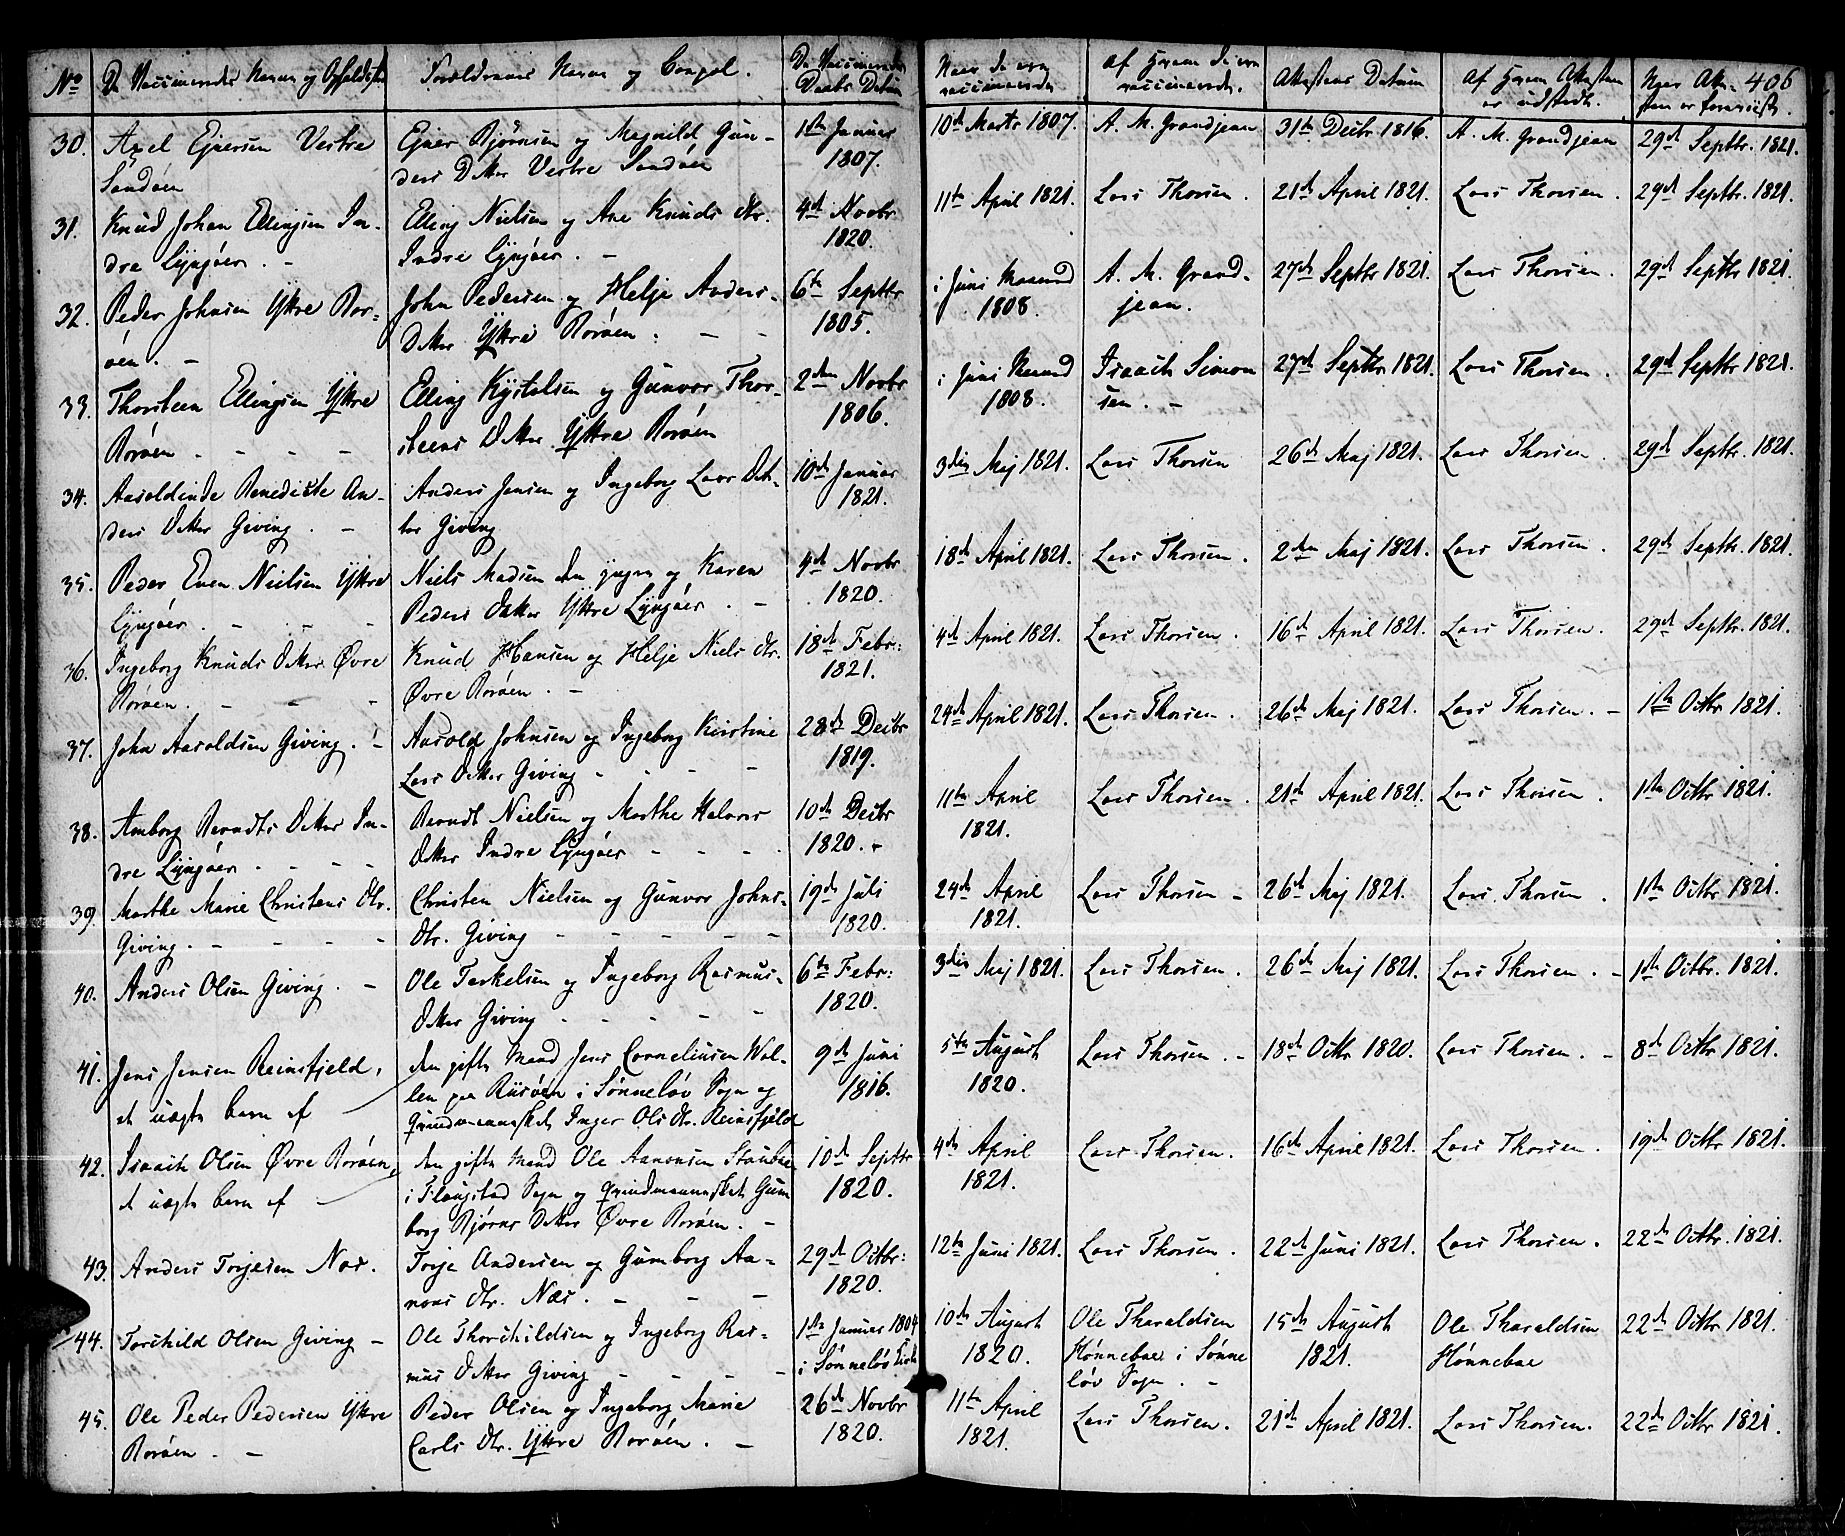 No De Vaccineredes Navne og Opholdssted Forældrenes Navne og Bopæl. De Vaccineredes Daabs Datum Naar de ere vaccinerede af Hvem de ere vaccinerede. Attestens Datum af Hvem Attesten er udstedt. Naar Atte- 406
sten er foreviist.
30. Axel Ejversen Vestre Ejver Bjørnsen og Magnild Gun- 1ste Januar 10de Marts 1807. A. M. Grandjean 31te Decbr 1816. A. M. Grandjean 29de Septbr. 1821.
Sandøen ders Datter Vestre Sandøen 1807.
31. Knud Johan Ellingsen In- Elling Nielsen og Ane Knuds Dtr. 4de Novbr 11te April 1821. Lars Thorsen. 21de April 1821. Lars Thorsen. 29de Septbr. 1821.
dre Lyngøer. - Indre Lyngøer. - 1820.
32. Peder Johnsen Ÿttre Bor- John Pedersen og Helje Anders- 6te Septbr i Juni Maaned A. M. Grand- 27de Septbr 1821. Lars Thorsen. 29de Septbr 1821.
øen. - Datter Ÿttre Borøen. - - 1805. 1808. jean.
33. Thorsteen Ellingsen Ÿttre Elling Kystelsen og Gunvor Thor- 2den Novbr i Juni Maaned Isaach Simon 27de Septbr 1821. Lars Thorsen. 29de Septbr 1821.
Borøen . - - - steens Datter Ÿttre Borøen 1806. 1808. sen. -
34. Aaroldinde Benedicte An- Anders Jensen og Ingeborg Lars Dat- 10de Januar 3die Maj 1821. Lars Thorsen 26de Maj 1821. Lars Thorsen. 29de Septbr. 1821.
ders Datter Giving . - ter Giving 1821.
35. Peder Even Nielsen Ÿttre Niels Madsen den yngre og Karen 4de Novbr 18de April 1821. Lars Thorsen. 2den Maj 1821. Lars Thorsen. 29de Septbr. 1821.
Lyngøer. - - - Peders Datter Ÿttre Lyngøer. - 1820.
36. Ingeborg Knuds Datter Øvre Knud Hansen og Helje Niels Dtr. 18de Febr: 4de April 1821. Lars Thorsen. 16de April 1821. Lars Thorsen. 29de Septbr. 1821.
Borøen. - - - Øvre Borøen. - 1821.
37. John Aaroldsen Giving. - Aarold Johnsen og Ingeborg Kirstine 28de Decbr 24de April 1821. Lars Thorsen. 26de Maj 1821. Lars Thorsen. - 1ste Octbr 1821.
Lars Datter Giving - - - - 1819.
38. Amborg Berndts Datter In- Berndt Nielsen og Marthe Halvors 10de Decbr 11te April Lars Thorsen. 21de April 1821. Lars Thorsen. 1ste Octbr 1821.
dre Lyngøer. - - - - Datter Indre Lyngøer - - - . 1820. - 1821.
39. Marthe Marie Christens Dtr. Christen Nielsen og Gunvor Johns- 19de Juli 24de April Lars Thorsen - 26de Maj 1821. Lars Thorsen. 1ste Octbr 1821.
Giving. - - - - Dtr. Giving - - - - - 1820. 1821.
40. Anders Olsen Giving. - Ole Terkelsen og Ingeborg Rasmus- 6te Febr: 3die Maj 1821. Lars Thorsen. 26de Maj 1821. Lars Thorsen. - 1ste Octbr. 1821.
Datter Giving - - - - - 1820.
41. Jens Jensen Reinsfjeld, den gifte Mand Jens Corneliusen Wal- 9de Juni 5te August Lars Thorsen. - 18de Octbr 1820. Lars Thorsen. - 8de Octbr 1821.
et uægte barn af len paa Riisøen i Sønneløv Sogn og 1816. 1820.
Qvindmennesket Inger Ols Dtr. Reinsfjeld
42. Isaach Olsen Øvre Borøen, den gifte Mand Ole Aanonsen Stubøe 10de Septbr 4de April Lars Thorsen. 16de April 1821. Lars Thorsen. 19de Octbr 1821.
et uægte barn af i Flangstad Sogn og Qvindmennesket Gum 1820. 1821.
borg Bjørns Datter Øvre Borøen. -
43. Anders Torjesen Næs. Torje Andersen og Gumborg Aa- 29de Octbr: 12te Juni 1821. Lars Thorsen. 22de Juni 1821. Lars Thorsen. 22de Octbr. 1821.
nons Dtr. Næs. - - - 1820.
44. Torchild Olsen Giving - Ole Thorchildsen og Ingeborg Ras- 1ste Januar 1804 10de August Ole Tharaldsen 15de August Ole Tharaldsen 22de Octbr 1821.
mus Datter Giving - - - - i Sønneløv Kirke 1820. Hønnebæe i Sønne 1821. Hønnebæe
løv Sogn. -
45. Ole Peder Pedersen Ÿttre Peder Olsen og Ingeborg Marie 26de Novbr 11te April Lars Thorsen. 21de April 1821. Lars Thorsen. 22de Octbr 1821.
Borøen. - Carls Dtr. Ÿttre Borøen. - 1820. 1821.